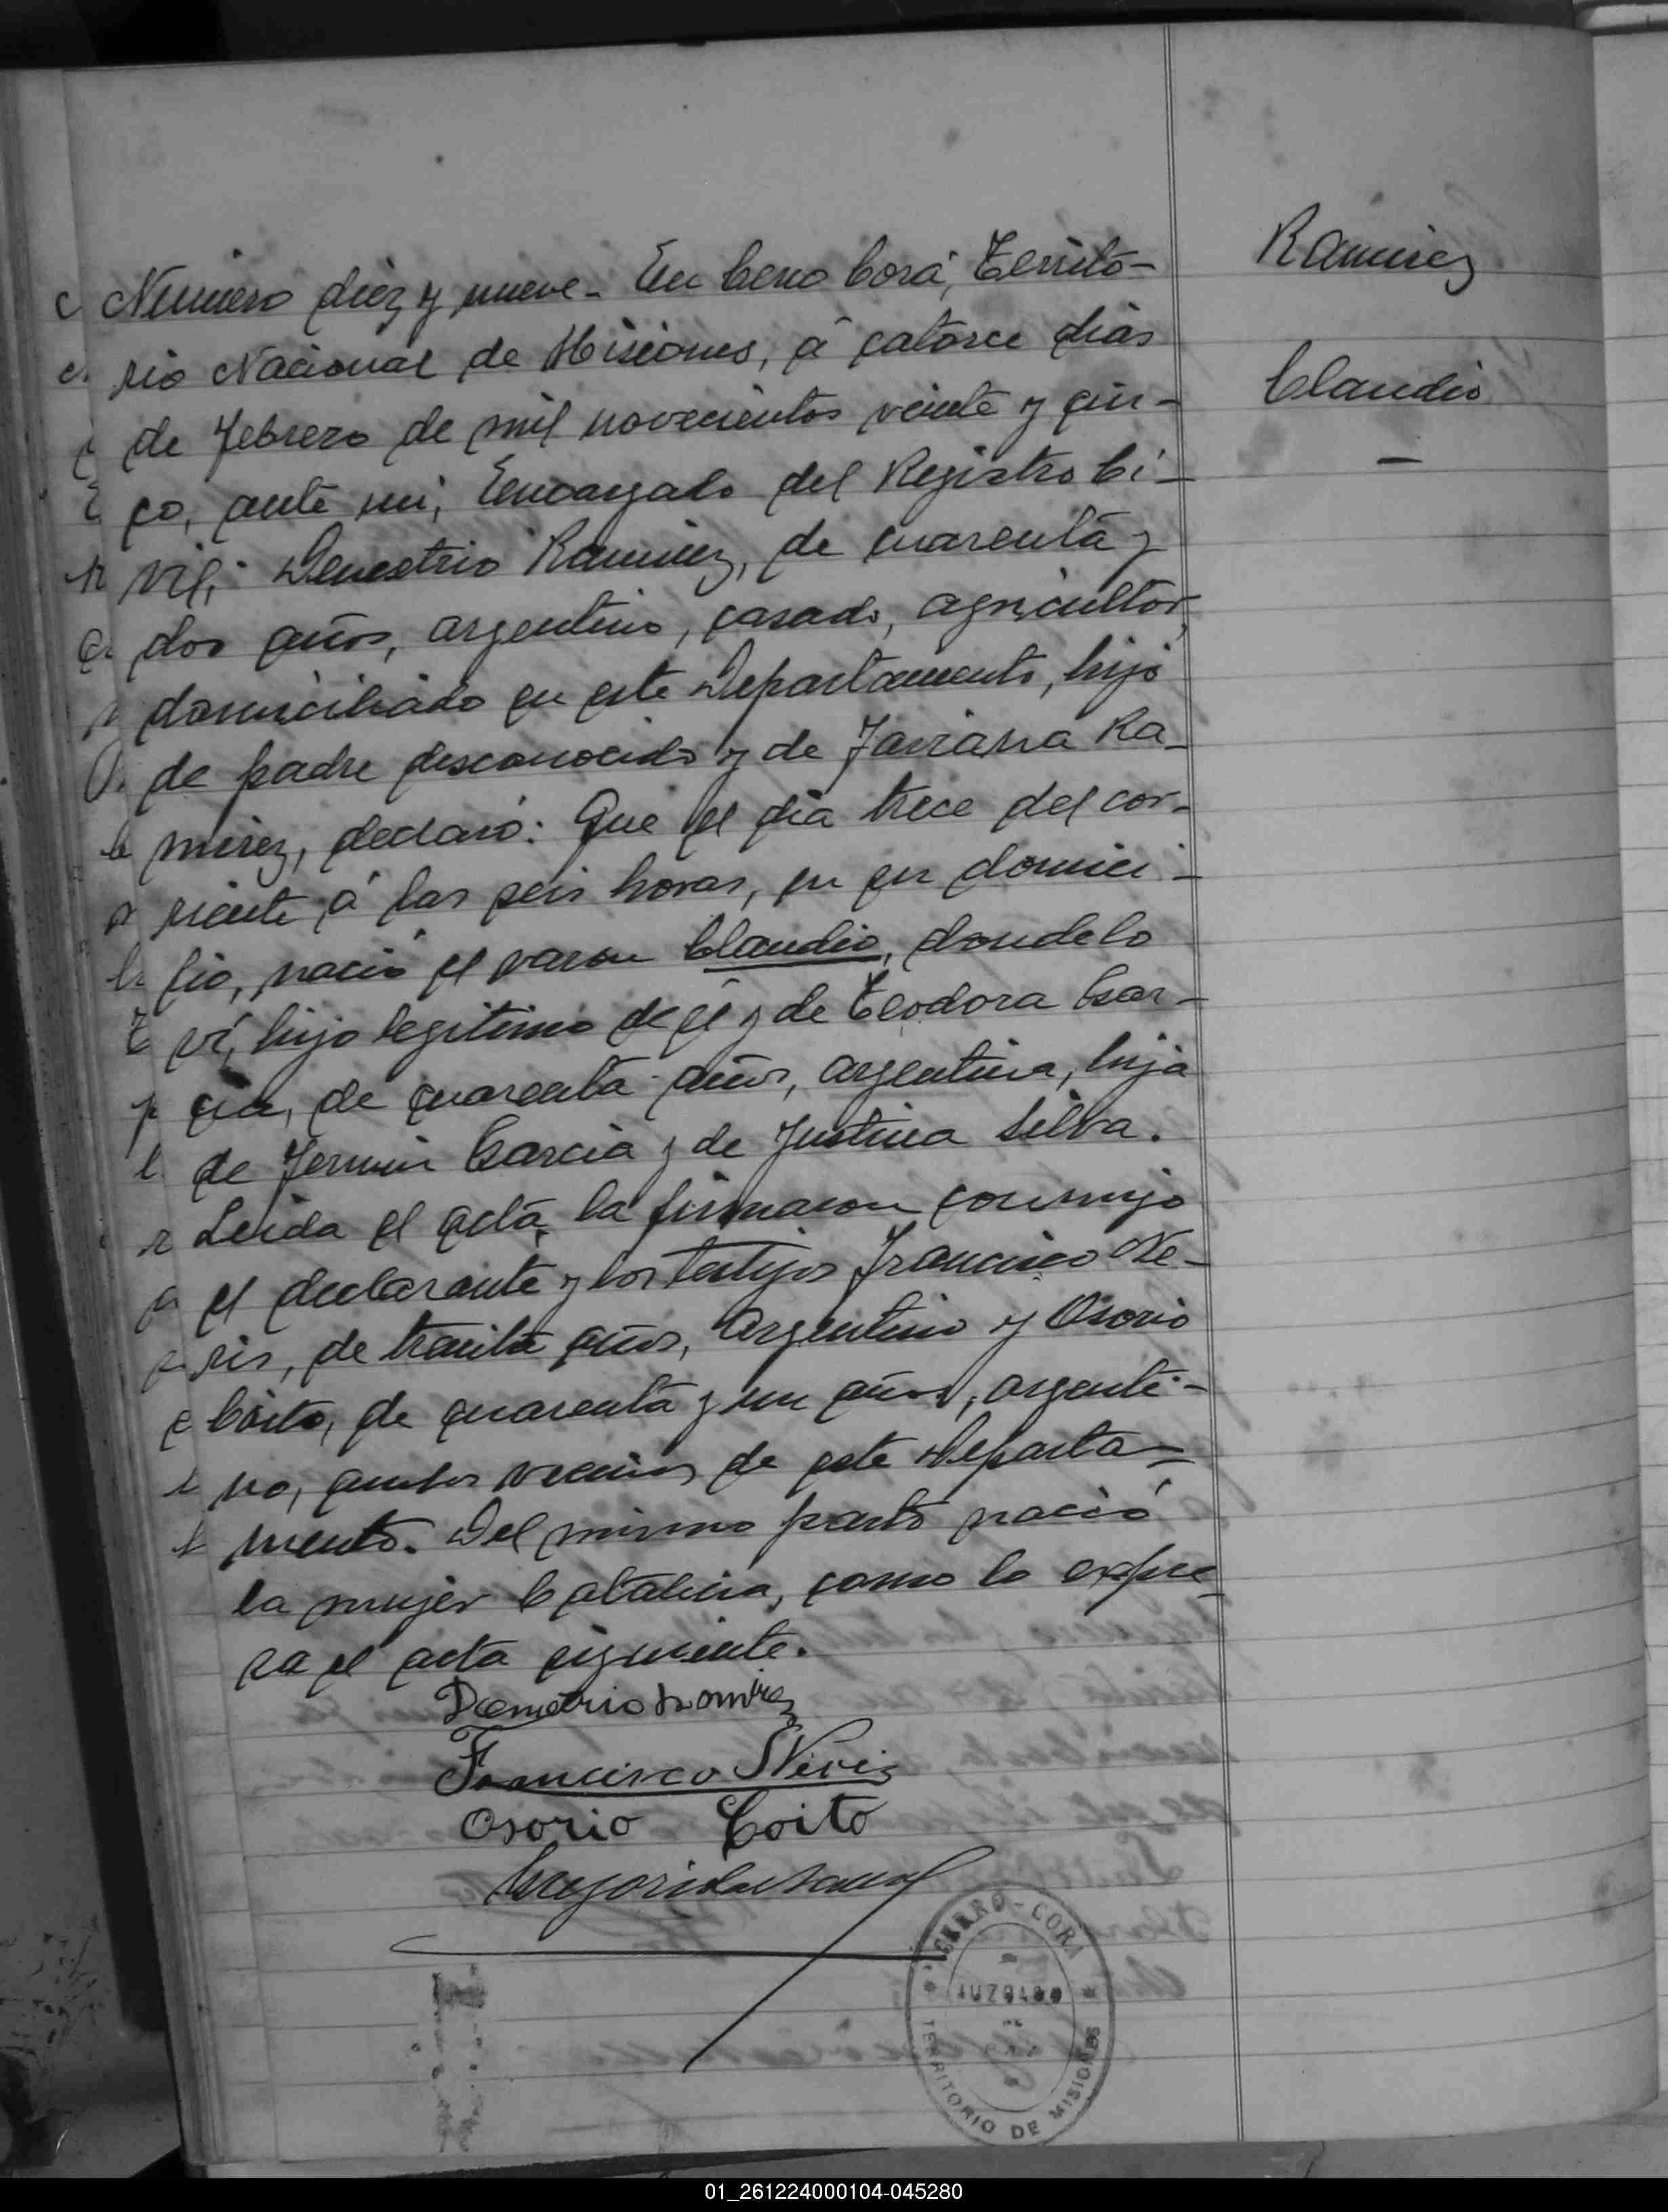 Ramirez
Claudio
Numero diez y nueve- En Cerro Corá, Territo-
rio Nacional de Misiones, á catorce dias
de febrero de mil novecientos veinte y cin-
co, ante mi, Encargado del Registro Ci-
vil; Demetrio Ramirez, de cuarenta y
dos años, argentino, casado, agricultor,
domiciliado en este Departamento, hijo
de padre desconocido y de Ra-
mirez, declaró: Que el dia trece del cor-
riente á las seis horas, en su domici-
lio, nació el varon Claudio, donde lo
ví, hijo legitimo de él y de Teodora Gar-
cia, de cuarenta años, argentina, hija
de Fermin Garcia y de Justina Silva.
Leida el acta, la firmaron conmigo
el declarante y los testigos Francisco Ne-
ris, de treinta años, argentino y Osorio
Coito, de cuarenta y un años, argenti-
no, ambos vecinos de este Departa-
mento. Del mismo parto nació
la mujer Catalina, como lo expre-
sa el acta siguiente.
Demetrio Ramirez
Francisco Neris
Osorio Coito
CERRO-CORA
JUZGADO
DE
PAZ
TERRITORIO DE MISIONES
01_261224000104-045280